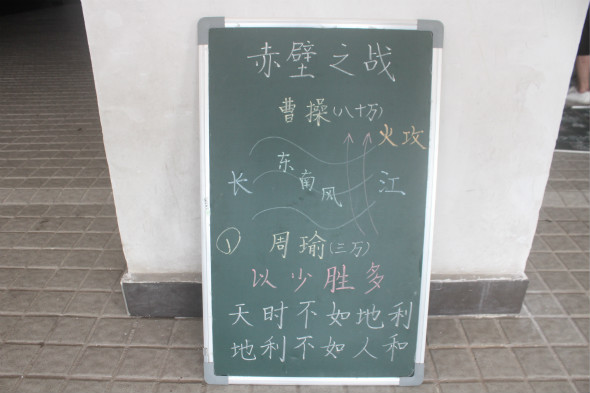 赤壁之战
曹操(八十万)
火攻
长 东南风 江
① 周瑜(三万)
以少胜多
天时不如地利
地利不如人和